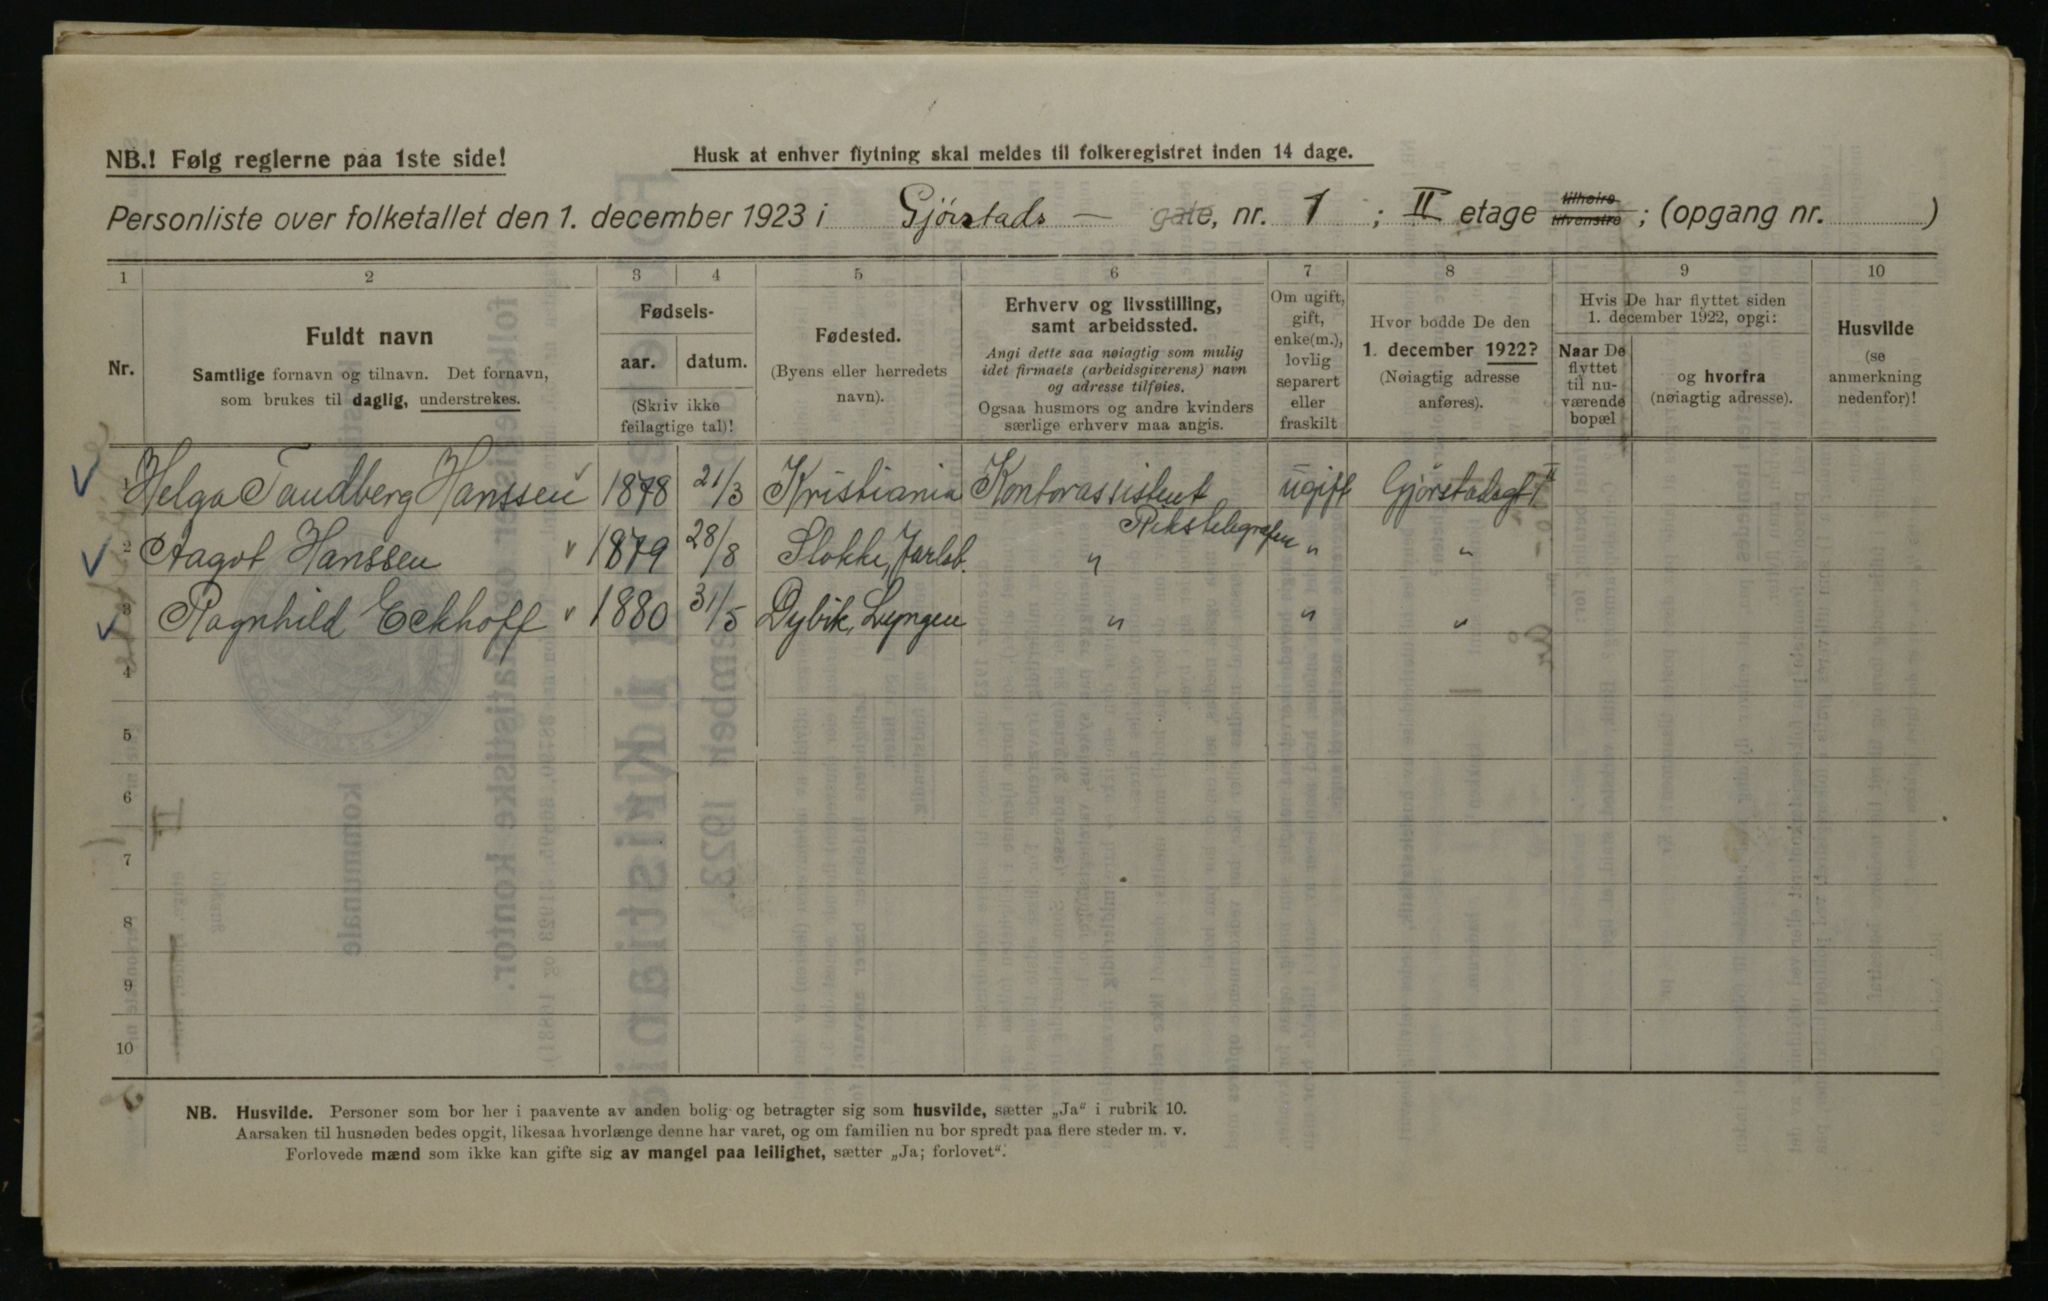 NB.! Følg reglerne paa 1ste side!
Husk at enhver flytning skal meldes til folkeregistret inden 14 dage.
Personliste over folketallet den 1. december 1923 i Gjörstads — gate, nr. 1 ; II etage tilhøire tilvenstre ; (opgang nr. )
1 2 3 4 5 6 7 8 9 10
Nr.
Fuldt navn
Samtlige fornavn og tilnavn. Det fornavn,
som brukes til daglig, understrekes.
Fødsels-
aar. datum.
(Skriv ikke
feilagtige tal)!
Fødested.
(Byens eller herredets
navn).
Erhverv og livsstilling,
samt arbeidssted.
Angi dette saa nøiagtig som mulig
idet firmaets (arbeidsgiverens) navn
og adresse tilføies.
Ogsaa husmors og andre kvinders
særlige erhverv maa angis.
Om ugift,
gift,
enke(m.),
lovlig
separert
eller
fraskilt
Hvor bodde De den
1. december 1922?
(Nøiagtig adresse
anføres).
Hvis De har flyttet siden
1. december 1922, opgi:
Naar De
flyttet
til nu-
værende
bopæl
og hvorfra
(nøiagtig adresse).
Husvilde
(se
anmerkning
nedenfor)!
1 Helga Tandberg Hanssen 1878 21/3 Kristiania Kontorassistent ugift Gjörstadsgt 1 II
Rikstelegrafen
2 Aagot Hanssen 1879 28/8 Slokke, Jarlsb. " " "
3 Ragnhild Eckhoff 1880 31/5 Dybvik, Lyngen " " "
4
5
6
7
8
9
10
NB. Husvilde. Personer som bor her i paavente av anden bolig og betragter sig som husvilde, sætter „Ja“ i rubrik 10.
Aarsaken til husnøden bedes opgit, likesaa hvorlænge denne har varet, og om familien nu bor spredt paa flere steder m. v.
Forlovede mænd som ikke kan gifte sig av mangel paa leilighet, sætter „Ja; forlovet“.